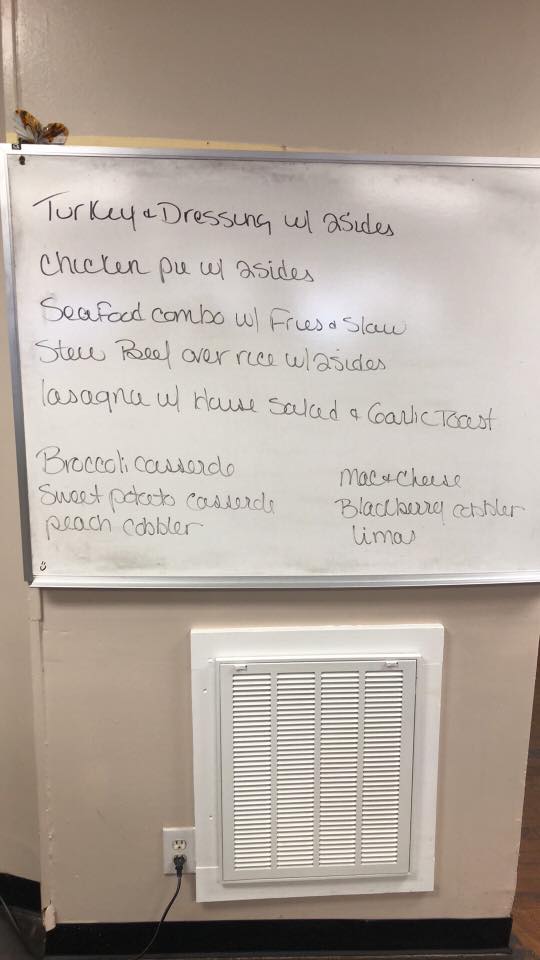 Turkey & Dressing w/ 2sides
chicken pie w/ 2sides
Seafood combo w/ Fries & Slaw
Stew Beef over rice w/ 2sides
lasagna w/ House Salad & Garlic Toast
Broccoli casserole
Sweet potato casserole
peach cobbler
Mac & cheese
Blackberry cobbler
limas